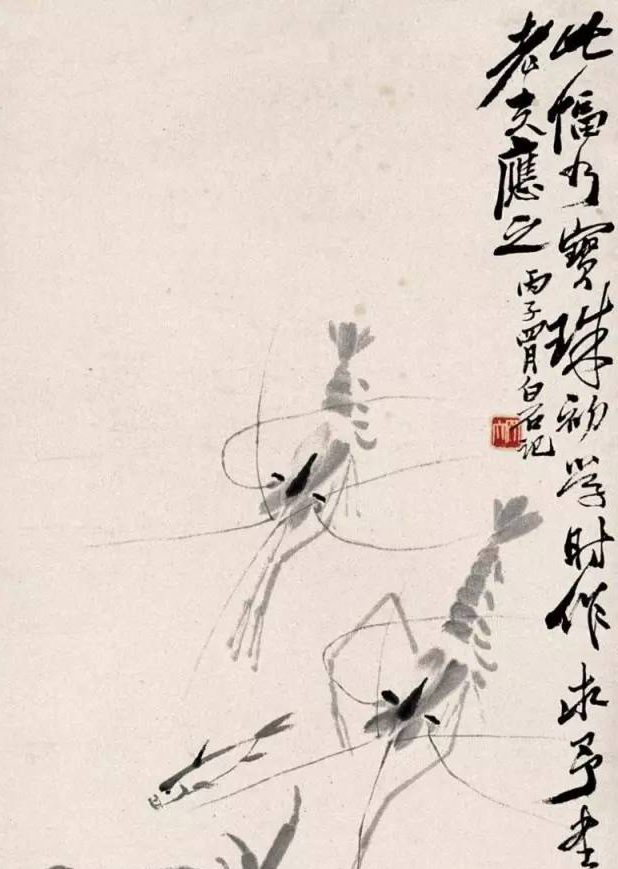 此幅乃寶珠初學时作求予
老夫應之
丙子四月白石記